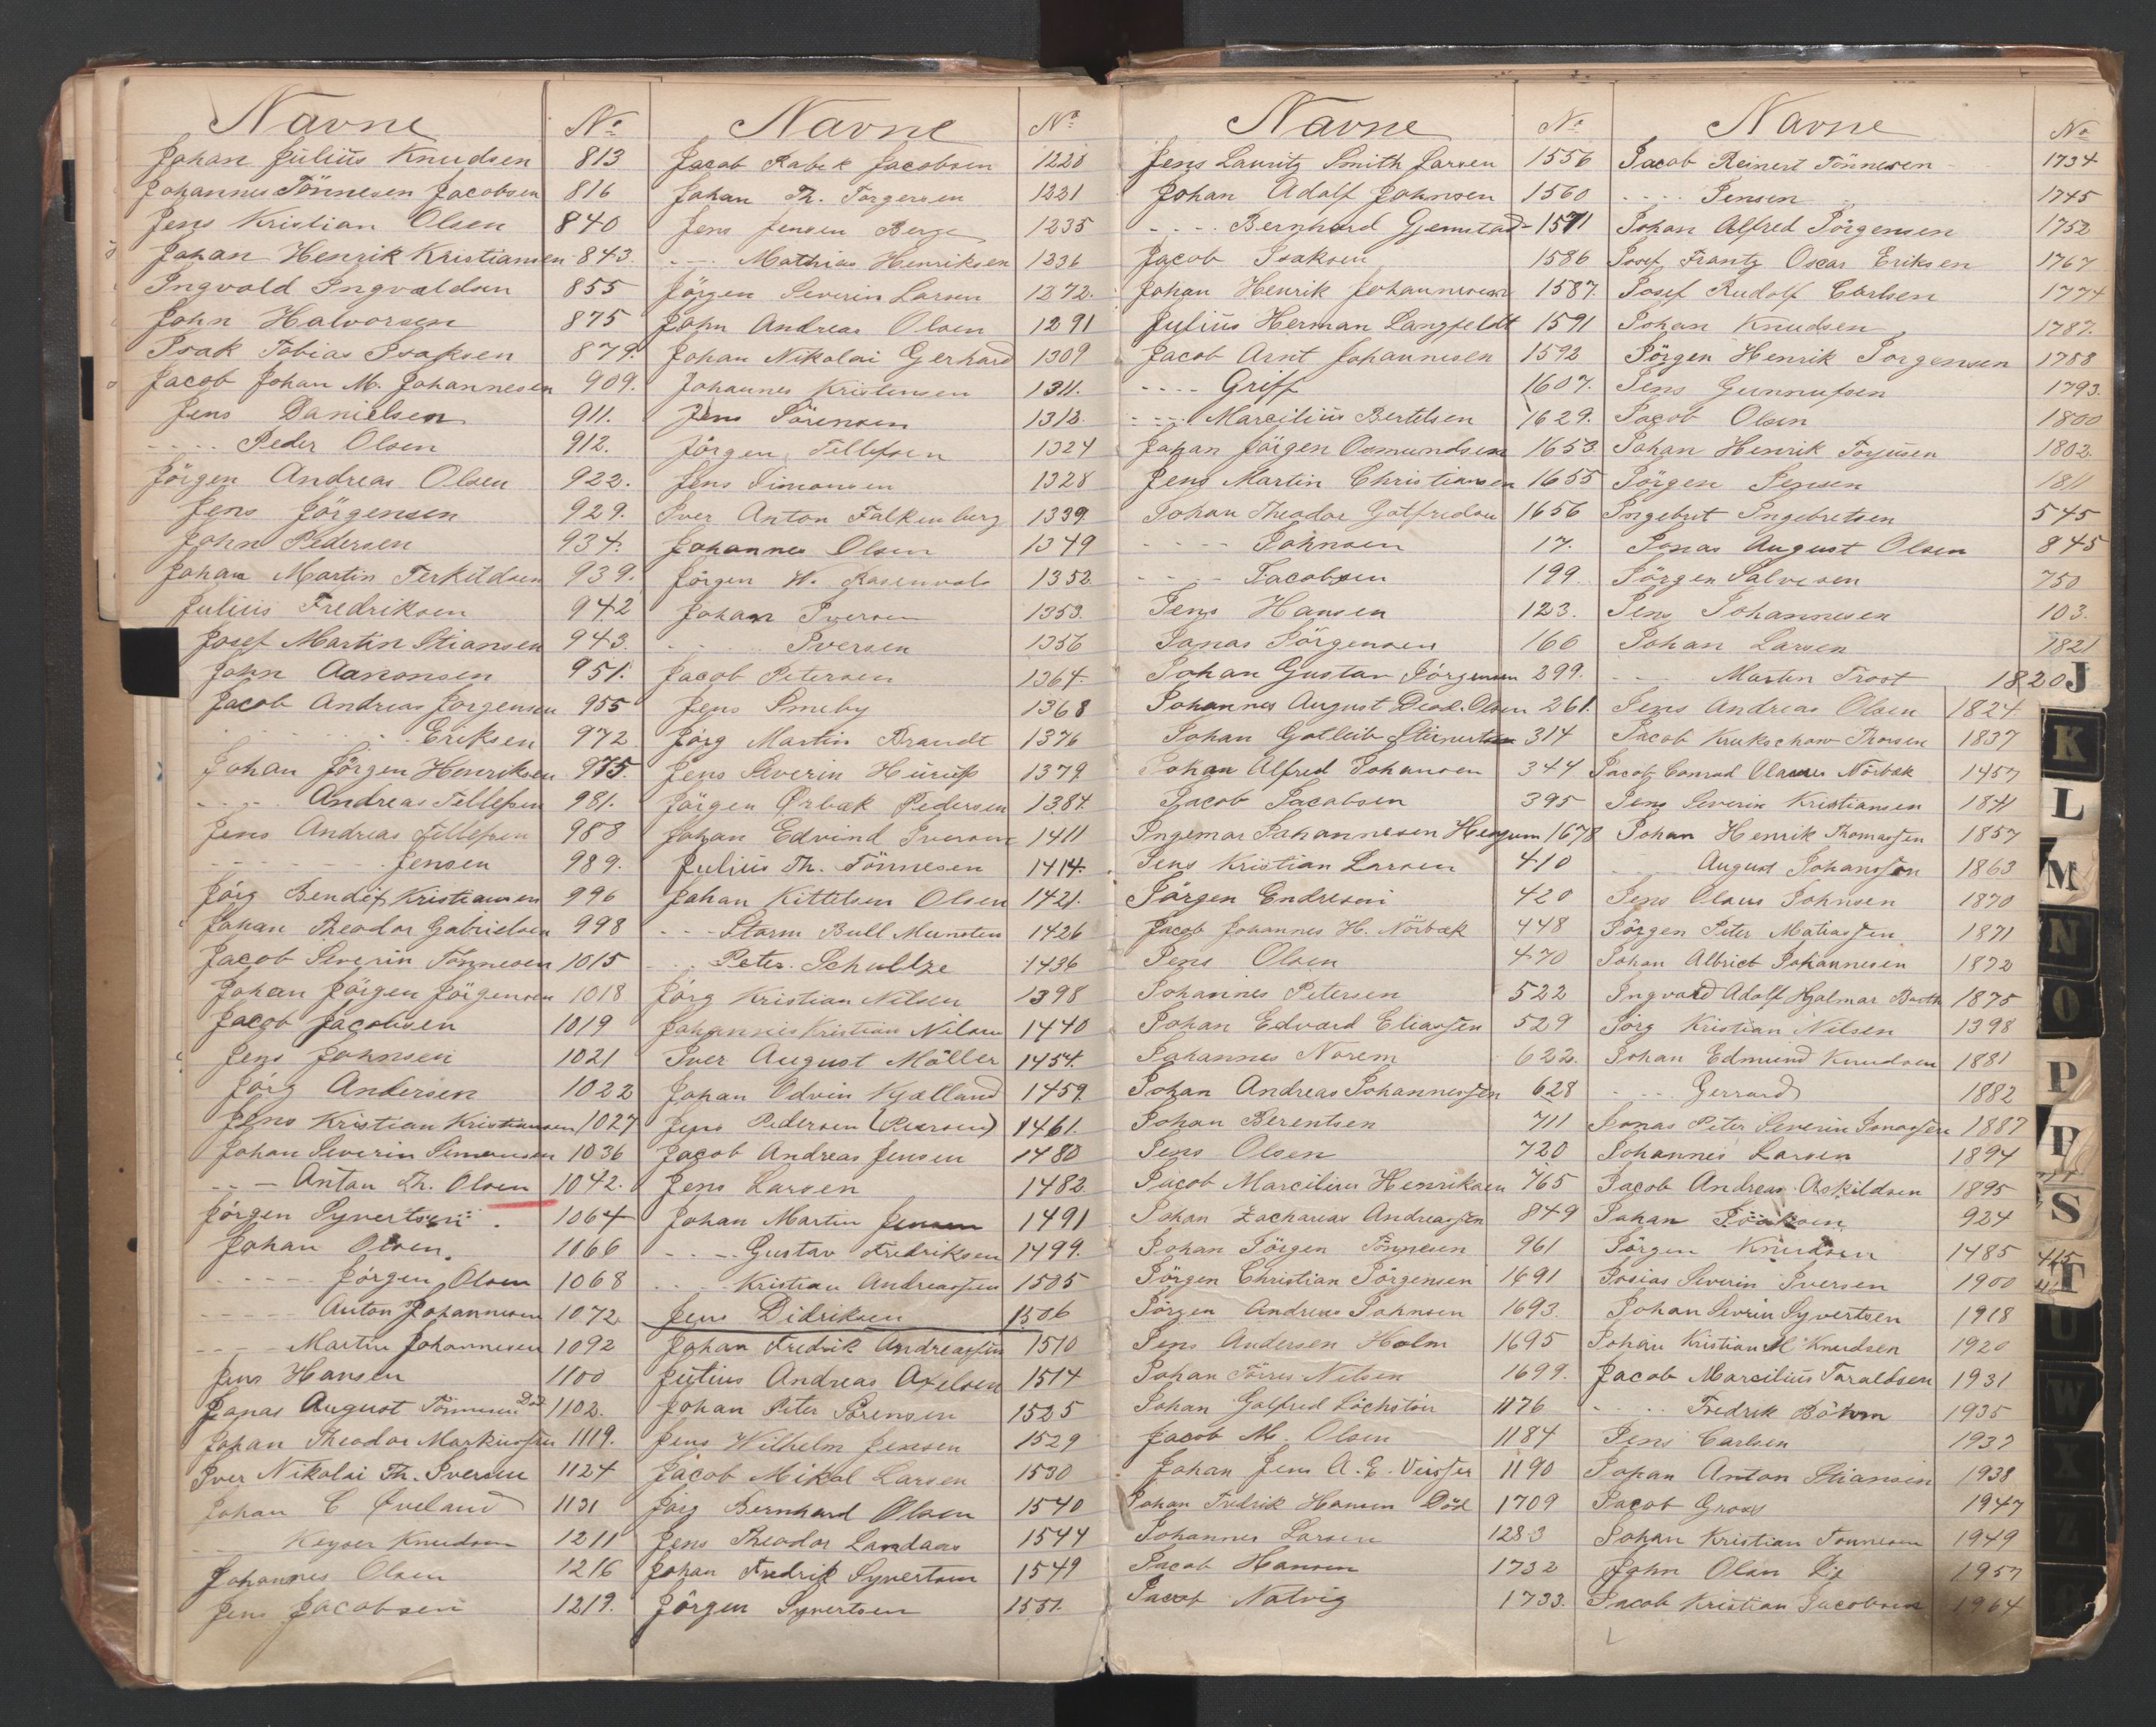 Navne No
Johan Julius Knudsen 813
Johannes Tönnesen Jacobsen 816
Jens Kristian Olsen 840
Johan Henrik Kristiansen 843.
Ingvald Ingvaldsen 855
John Halvorsen 875
Isak Tobias Isaksen 879.
Jacob Johan M. Johannesen 909.
Jens Danielsen 911.
- - - - Peder Olsen 912.
Jörgen Andreas Olsen 922.
Jens Jörgensen 929.
John Pedersen 934.
Johan Martin Terkildsen 939.
Julius Fredriksen 942
Josef Martin Stiansen 943.
John Aanonsen 951.
Jacob Andreas Jörgensen 955
- - - - Eriksen 972
Johan Jörgen Henriksen 975.
- - - Andreas Tellefsen 981.
Jens Andreas Tellefsen 988
- - - - Jensen 989.
Jörg Bendix Kristiansen 996
Johan Theodor Gabrielsen 998
Jacob Severin Tönnesen 1015
Johan Jörgen Jörgensen 1018
Jacob Jacobsen 1019
Jens Johnsen 1021
Jörg Andersen 1022
Jens Kristian Kristiansen 1027
Johan Severin Simonsen 1036
- - - Anton Th. Olsen 1042.
Jörgen Syvertsen 1064
Johan Olsen 1166
- - - - Jörgen Olsen 1068
- - - - Anton Johannesen 1072
- - - - Martin Johannesen 1092
Jens Hansen 1100
Jonas August Tönnesen Död 1102.
Johan Theodor Markussen 1119.
Iver Nikolai Th. Iversen 1124
Johan C Öveland 1131
- - Keyser Knudsen 1211
Johannes Olsen 1216
Jens Jacobsen 1219.
Navne No
Jacob Rabek Jacobsen 1220
Johan Th. Torgersen 1221
Jens Jensen Berge 1235
- - - Mathias Henriksen 1236
Jörgen Severin Larsen 1272.
John Andreas Olsen 1291
Johan Nikolai Gerhard 1309
Johannes Kristensen 1311.
Jens Sörensen 1313.
Jörgen Tellefsen 1324
Jens Simonsen 1328
Iver Anton Falkenberg 1339
Johannes Olsen 1349
Jörgen W. Rasenvold 1352.
Johan Iversen 1353.
- - - Iversen 1356
Jacob Petersen 1364.
Jens Smeby 1368
Jörg Martin Brandt 1376
Jens Severin Hurup 1379
Jörgen Örbæk Pedersen 1384.
Johan Edvind Iversen 1411
Julius Th. Tönnesen 1414.
Johan Kittelsen Olsen 1421.
- - - Storm Bull Munsten 1426
- - Peter Schultze 1436
Jörg Kristian Nilsen 1398
Johannes Kristian Nilsen 1440
Iver August Möller 1454.
Johan Odvin Kjælland 1459.
Jens Pedersen (Persen) 1461.
Jacob Andreas Jensen 1480
Jens Larsen 1482
Johan Martin Jensen 1491
- - - - Gustav Fredriksen 1499.
- - - Kristian Andreassen 1505
Jens Didriksen 1506
Johan Fredrik Andreassen 1510
Julius Andreas Axelsen 1514
Johan Peter Sörensen 1525
Jens Wilhelm Jensen 1529
Jacob Mikal Larsen 1530
Jörg Bernhard Olsen 1540
Jens Theodor Landaas 1544
Johan Fredrik Syvertsen 1549
Jörgen Syvertsen 1551.
Navne No
Jens Lauritz Smith Larsen 1556
Johan Adolf Johnsen 1560
- - - - Bernhard Gjemstad 1571
Jacob Isaksen 1586
Johan Henrik Johannesen 1587.
Julius Herman Langfeldt 1591
Jacob Arnt Johannesen 1592
- - - - Griff 1607.
- - - Marcilius Bertelsen 1629.
Johan Jörgen Osmundsen 1653.
Jens Martin Christiansen 1655
Johan Theodor Gotfredsen 1656
- - - - Johnsen 17.
- - - Jacobsen 199.
Jens Hansen 123.
Jonas Jörgensen 160
Johan Gustav Jörgensen 299.
Johannes August Deod. Olsen 261.
Johan Gotleib Steinertsen 314
Johan Alfred Johansen 344
Jacob Jacobsen 395
Ingemar Johannesen Hegum 1678
Jens Kristian Larsen 410
Jörgen Endresen 420
Jacob Johannes H. Nörbæk 448
Jens Olsen 470
Johannes Petersen 522
Johan Edvard Eliassen 529
Johannes Norem 622.
Johan Andreas Johannessen 628
Johan Berentsen 711
Jens Olsen 720
Jacob Marcilius Henriksen 765
Johan Zacharias Andreassen 849
Johan Jörgen Tönnesen 961
Jörgen Christian Jörgensen 1691
Jörgen Andreas Johnsen 1693.
Jens Andersen Holm 1695
Johan Törres Nilsen 1699.
Johan Golfred Löchstöer 1176
Jacob M. Olsen 1184
Johan Jens A. E. 1190
Johan Fredrik Hansen Död 1709
Johannes Larsen 1283
Jacob Hansen 1732
Jacob Natvig 1733.
Navne No
Jacob Reinert Tönnesen 1734
- - - - Jensen 1745
Johan Alfred Jörgensen 1752
Josef Frantz Oscar Eriksen 1767
Josef Rudolf Carlsen 1774
Johan Knudsen 1787.
Jörgen Henrik Jorgensen 1758
Jens Gunnufsen 1793.
Jacob Olsen 1800
Johan Henrik Torjusen 1802.
Jörgen Jensen 1811
Ingebret Ingebretsen 545
Jonas August Olsen 845
Jörgen Salvesen 750
Jens Johannesen 103.
Johan Larsen 1821
- - Martin Trost 1820
Jens Andreas Olsen 1824
Jacob Kruckschow Thorsen 1837
Jacob Conrad Olaves Nörbæk 1457
Jens Severin Kristiansen 1841
Johan Henrik Thomassen 1857
- - August Johanssen 1863
Jens Olaus Johnsen 1870
Jörgen Peter Matiassen 1871
Johan Albrict Johannesen 1872
Ingvard Adolf Hjalmar Barth 1875
Jörg Kristian Nilsen 1398
Johan Edmund Knudsen 1881
- - - Gerrard 1882
Jonas Peter Severin Jonassen 1887
Johannes Larsen 1894
Jacob Andreas Askildsen 1895
Johan Isaksen 924
Jörgen Knudsen 1485
Josias Severin Iversen 1900
Johan Severin Syvertsen 1918
Johan Kristian M Knudsen 1920
Jacob Marcilius Taraldsen 1931
- - - - Fredrik Böhm 1935
Jens Carlsen 1937
Johan Anton Stiansen 1938
Jacob Groos 1947
Johan Kristian Tönnesen 1949
John Olsen 1957
Jacob Kristian Jacobsen 1964
J
K
L
M
N
O
P
S
T
U
W
X
Z